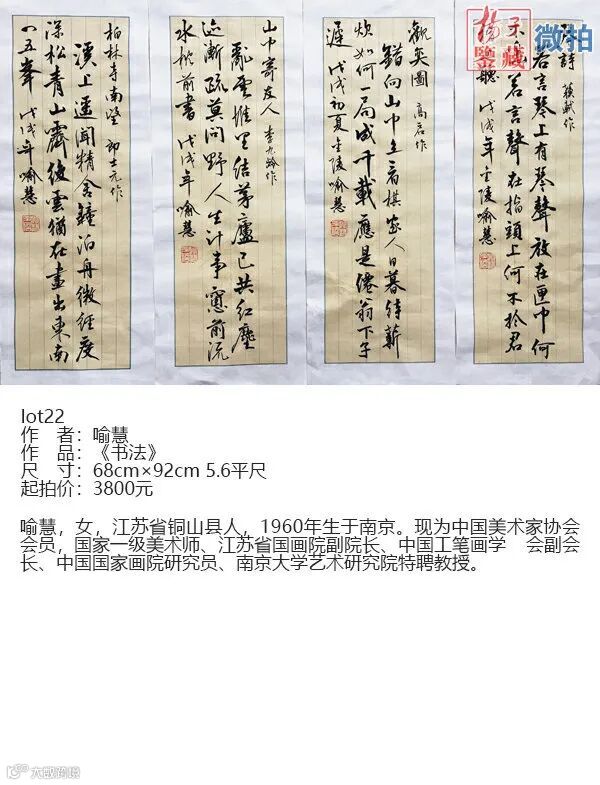 揚子
鑒藏
微拍
詩 蘇軾作
若言琴上有琴聲放在匣中何
不 若言聲在指頭上何不於君
聽 戊戌年金陵喻慧
觀奕圖 高启作
錯向山中立看棋家人日暮待薪
炊如何一局成千載應是僊翁下子
遲 戊戌初夏金陵喻慧
山中寄友人 李九龄作
亂雲堆里結茅廬已共紅塵
迹漸疏莫問野人生計事窓前流
水枕前書 戊戌年喻慧
柏林寺南望 郎士元作
溪上遥聞精舍鐘泊舟微徑度
深松青山霽後雲猶在畫出東南
四五峯 戊戌年喻慧
lot22
作 者：喻慧
作 品：《书法》
尺 寸：68cm×92cm 5.6平尺
起拍价：3800元
喻慧，女，江苏省铜山县人，1960年生于南京。现为中国美术家协会
会员，国家一级美术师、江苏省国画院副院长、中国工笔画学 会副会
长、中国国家画院研究员、南京大学艺术研究院特聘教授。
大数跨境